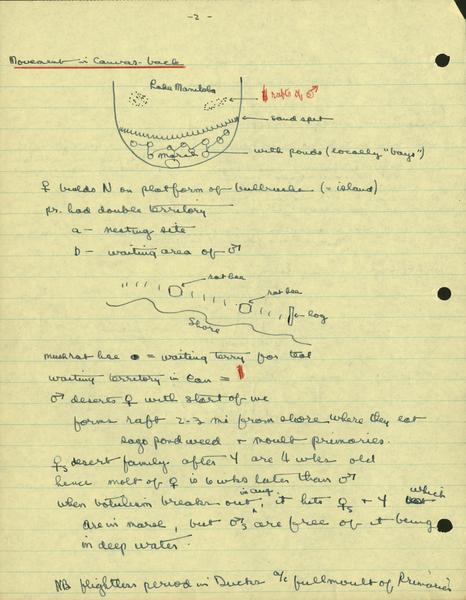 -2-
Movement in Canvas-back
Lake Manitoba
rafts of ♂
sand spit
marsh
with ponds (locally "bays")
♀ builds N on platform of bullrushes (= island)
pr. had double territory
a - nesting site
b - waiting area of ♂
rat hse
rat hse
log
Shore
muskrat hse = waiting terry for teal
waiting territory in Can =
♂ deserts ♀ with start of
forms raft 2-3 mi from shore where they eat
sago pond weed + moult primaries.
♀s desert family after Y are 4 wks old
hence molt of ♀ is 6 wks later than ♂
when botulism breaks out, in aug. it hits ♀s + Y which
are in marsh, but ♂s are free of it being
in deep water.
NB flightless period in Ducks a/c full moult of Primaries